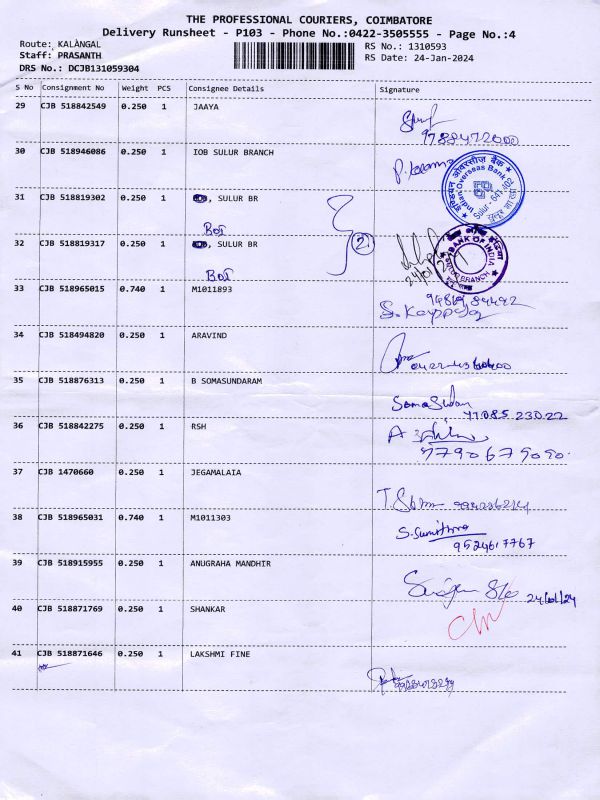 THE PROFESSIONAL COURIERS, COIMBATORE
Delivery Runsheet - P103 - Phone No.:0422-3505555 - Page No.:4
Route: KALANGAL
RS No.: 1310593
Staff: PRASANTH
RS Date: 24-Jan-2024
DRS No.: DCJB131059304
S No Consignment No Weight PCS Consignee Details Signature
29 CJB 518842549 0.250 1 JAAYA
9788472000
30 CJB 518946086 0.250 1 IOB SULUR BRANCH
इंडियन ओवरसीज़ बैंक
Indian Overseas Bank
Sulur - 641 402
31 CJB 518819302 0.250 1 , SULUR BR
BOI
2
32 CJB 518819317 0.250 1 , SULUR BR
BOI
24/01/24
BANK OF INDIA
BRANCH
33 CJB 518965015 0.740 1 M1011893
34 CJB 518494820 0.250 1 ARAVIND
35 CJB 518876313 0.250 1 B SOMASUNDARAM
36 CJB 518842275 0.250 1 RSH
37 CJB 1470660 0.250 1 JEGAMALAIA
38 CJB 518965031 0.740 1 M1011303
S. Sumithra
9524617767
39 CJB 518915955 0.250 1 ANUGRAHA MANDHIR
24/01/24
40 CJB 518871769 0.250 1 SHANKAR
41 CJB 518871646 0.250 1 LAKSHMI FINE